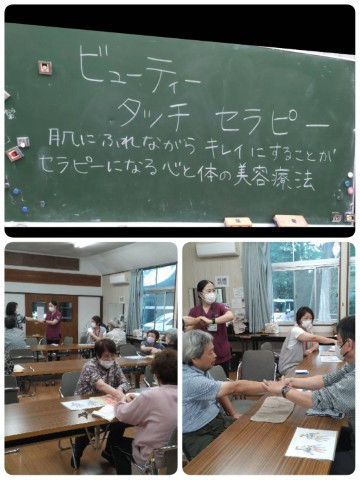 ビューティー
タッチ セラピー
肌にふれながら キレイにすることが
セラピーになる心と体の美容療法